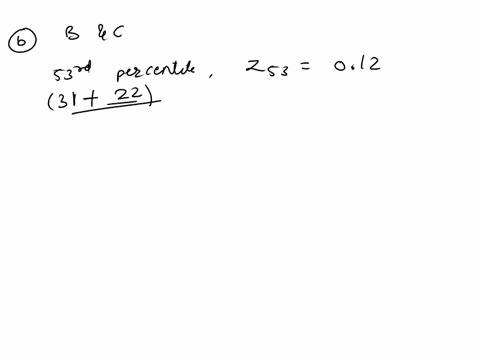 (b) B & C
53rd percentile, Z53 = 0.12
(31 + 22)